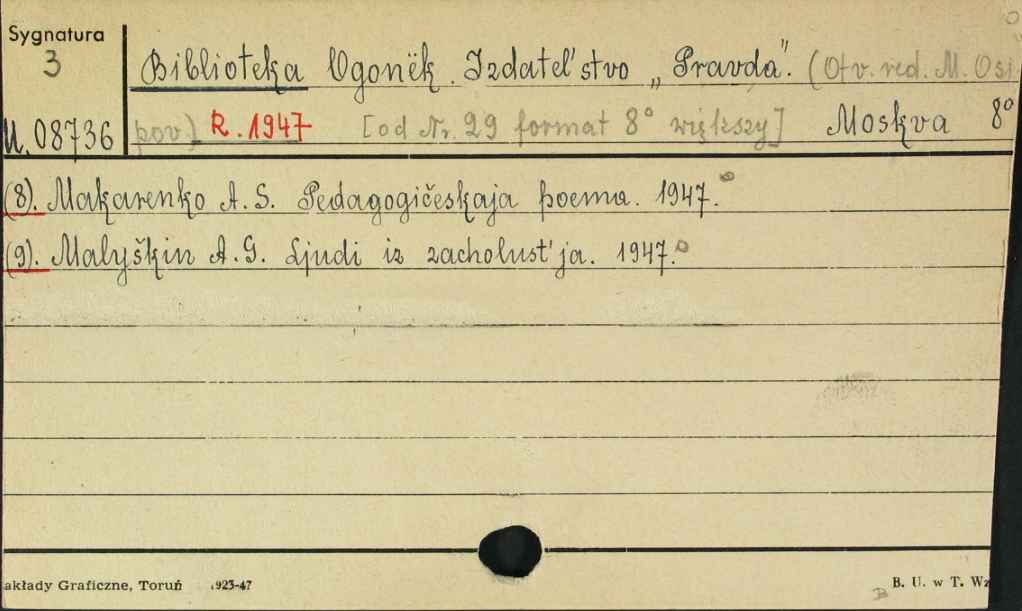 Sygnatura
3
U. 08736
Biblioteka Ogonëk. Izdatel'stvo „Pravda". (Otv. red. M. Osi
pov) R. 1947 [od Nr. 29 format 8° większy] Moskva 8°
(8). Makarenko A. S. Pedagogičeskaja poema. 1947.
(9). Malyškin A. G. Ljudi iz zacholust'ja. 1947.
akłady Graficzne, Toruń 1923-47
B. U. w T. Wz
B